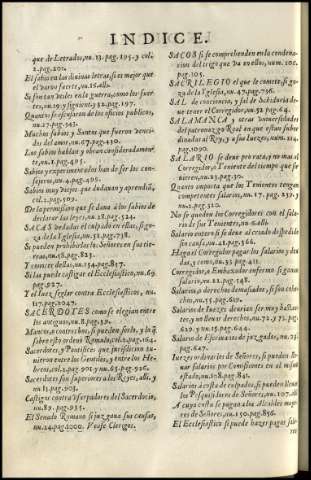 INDICE.
que de Letrados, nu. 13. pag. 195. y col.
2. pag. 202.
El sabio en las diuinas letras, si es mejor que
el varon fuerte, nu. 15. alli.
Si son tan vtiles en la guerra, como los fuer-
tes, nu. 19. y siguient. 32. pag. 197.
Quantos se escusaron de los oficios publicos,
nu. 27. pag. 342.
Muchos sabios y Santos que fueron venci-
dos del amor, nu. 67. pag. 430.
Los sabios hablan y obran consideradamen-
te, nu. 1. pag. 495.
Sabios y experimentados han de ser los con-
sejeros, nu. 4. pag. 496.
Sabios muy viejos que dudauan y aprendiā,
col. 2. pag. 509.
De la permission que se dan a los sabios de
declarar las leyes, nu. 18. pag. 524.
SACAS vedadas el culpado en ellas, si go-
za de la Yglesia, nu. 52. pag. 738.
Si pueden prohibirlas los Señores en sus tie-
rras, nu. 48. pag. 821.
Y conocer dellas, nu. 154. pag. 857.
Si las puede castigar el Ecclesiastico, nu. 69.
pag. 927.
Y el juez seglar contra Ecclesiasticos, nu.
117. pag. 2047.
SACERDOTES como se elegian entre
los antiguos, nu. 8. pag. 39.
Mancos, o contrechos, si pueden serlo, y lo q̄
sobre esto ordenò Romulo, col. 2. pag. 164.
Sacerdotes, y Pontifices que jurisdicion tu-
uieron entre los Gentiles, y entre los He-
breos, col. 2. pag. 901. y nu. 65. pag. 926.
Sacerdotes son superiores a los Reyes, alli, y
nu. 1. pag. 903.
Castigos contra vsurpadores del Sacerdocio,
nu. 89. pag. 935.
El Senado Romano si juzgaua sus causas,
nu. 14. pag. Vease Clerigos.
SACOS si se comprehenden en la condena-
cion del trigo que va en ellos, num. 100.
pag. 105.
SACRILEGIO el que le comete, si go-
za de la Yglesia, nu. 47. pag. 736.
SAL de conciencia, y sal de sabiduria de-
ue traer el Corregidor, nu. 52. pag. 64.
SALAMANCA y otras vniuersidades
del patronazgo Real en que estan subor-
dinadas al Rey, y a sus Iuezes, num. 114.
pag. 1090.
SALARIO se deue prorrata, y no mas al
Corregidor, al Teniente del tiempo que sir-
uieren, nu. 23. pag. 30.
Quanto importa que los Tenientes tengan
competentes salarios, nu. 17. pag. 232. y
num. 2. pag. 220.
No se queden los Corregidores con el sala-
rio de sus Tenientes, nu. 6. alli.
Salario entero si se deue al criado despedido
sin causa, nu. 41. pag. 366.
Haga el Corregidor pagar los salarios y deu-
das, y como, nu. 33. pag. 411.
Corregidor, o Embaxador enfermo si gana
salario, nu. 22. pag. 148.
Salarios, o derechos demasiados, si son cohe-
chos, nu. 75. pag. 639.
Salarios de Iuezes deurian ser muy bastan-
tes, y no lleuar derechos, nu. 72. y 75. pag.
639. y nu. 15. pag. 644.
Salario de Escriuanos de juzgados, nu. 23.
pag. 647.
Iuezes ordenarles de Señores, si pueden lle-
uar salarios por Comissiones en el mismo
estado, nu. 198. pag. 841.
Salarios a costa de culpados, si pueden lleuar
los Pesquisidores de Señores, nu. 107. alli.
A cuya costa se pagan los Alcaldes mayo-
res de Señores, nu. 150. pag. 856.
El Ecclesiastico si puede hazer pagar sala-